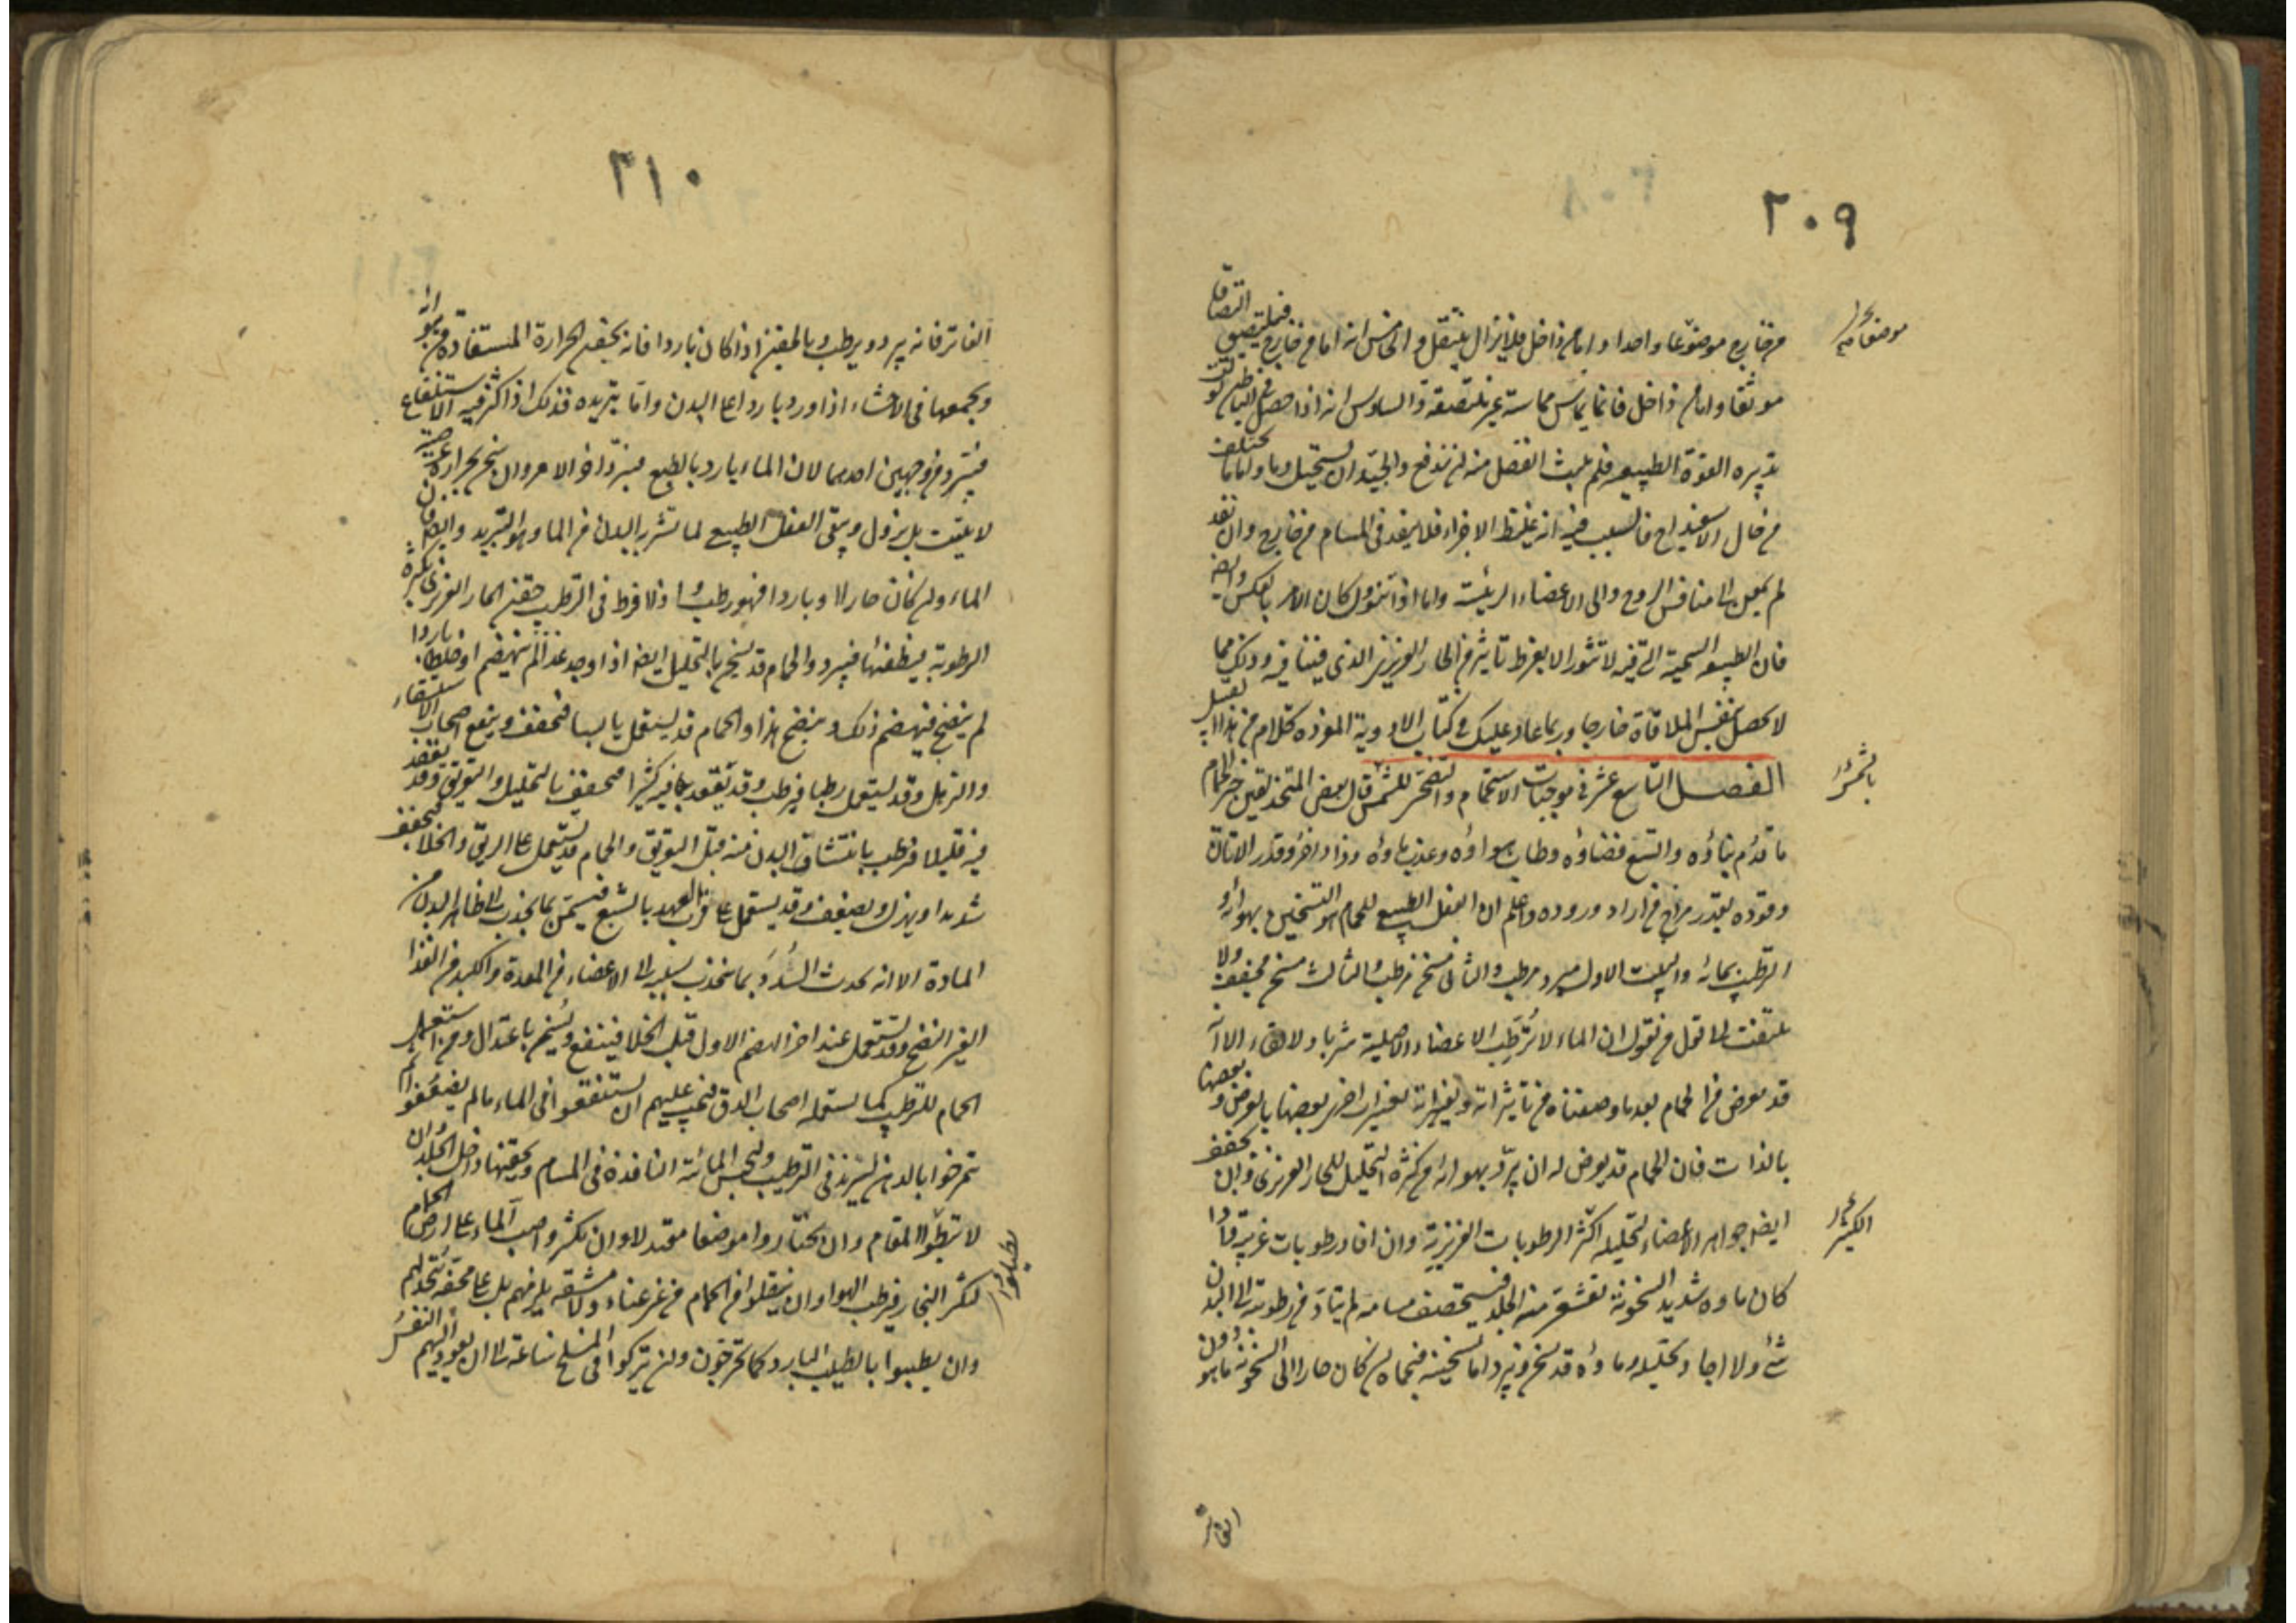 ٢٠٩
من خارج موضعا واحدا واما من داخل فلا يزال ينتقل والخامس انه اما من خارج فيلتصق التصاقا
موثقا واما من داخل فانما يماس مماسة غير ملتصقة والسادس انه اذا حصل في الباطن تولت
تدبيره القوة الطبيعية فلم يلبث الفضل منه ان يندفع والجيد ان يستحيل دما واما ما يختلف
من حال الاسفيداج فالسبب فيه انه غليظ الاجزاء فلا ينفذ في المسام من خارج وان نفذ
لم يمعن الى منافس الروح والى الاعضاء الرئيسة واما اذا تنوول كان الامر بالعكس وايضا
فان الطبيعة السمية التي فيه لا تثور الا بفرط تاثير من الحار الغريزي الذي فينا فيه وذلك مما
لا يحصل بنفس الملاقاة خارجا وربما عاد عليك في كتاب الادوية المفردة كلام من هذا القبيل
الفصل التاسع عشر في موجبات الاستحمام والتضحي للشمس قال بعض المتحذلقين خير الحمام
ما قدم بناؤه واتسع فضاؤه وطاب هواؤه وعذب ماؤه وزاد اخر وقدر الاتان
وقوده بقدر مزاج من اراد وروده واعلم ان الفعل الطبيعي للحمام هو التسخين بهوائه و
الترطيب بمائه والبيت الاول مبرد مرطب والثاني مسخن مرطب والثالث مسخن مجفف ولا
يلتفت الى قول من يقول ان الماء لا يرطب الاعضاء الاصلية شربا ولا لقاء الا انه
قد يعرض من الحمام بعد ما وصفناه من تاثيراته وتغييراته تغييرات اخرى بعضها بالعرض وبعضها
بالذات فان الحمام قد يعرض له ان يبرد بهوائه من كثرة التحليل للحار الغريزي وان يجفف
ايضا جواهر الاعضاء لتحليله اكثر الرطوبات الغريزية وان افاد رطوبات غريبة واذا
كان ماؤه شديد السخونة تقشعر منه الجلد فيستحصف مسامه لم يتاد من رطوبته الى البدن
شئ ولا اجاد تحليله وماؤه قد يسخن ويبرد اما تسخينه فبحماه ان كان حارا الى السخونة ما هو دون
الفاتر
٢١٠
الفاتر فانه يبرد ويرطب وبالحقن اذا كان باردا فانه يحقن الحرارة المستفادة من هوائه
ويجمعها في الاحشاء اذا ورد باردا على البدن واما تبريده فذلك اذا كثر فيه الاستنقاع
فيبرد من وجهين احدهما لان الماء بارد بالطبع فيبرد اخر الامر وان سخن بحرارة عرضية
لا يثبت بل يزول ويبقى الفعل الطبيعي لما تشربه البدن من الماء وهو التبريد وايضا فان
الماء وان كان حارا او باردا فهو رطب واذا افرط في الترطيب حقن الحار الغريزي من كثرة
الرطوبة فيطفئها فيبرد والحمام قد يسخن بالتحليل ايضا اذا وجد غذاء لم ينهضم او خلطا باردا
لم ينضج فيهضم ذلك وينضج هذا والحمام قد يستعمل يابسا فيجفف وينفع اصحاب الاستسقاء
والترهل وقد يستعمل رطبا فيرطب وقد يقعد فيه كثيرا فيجفف بالتحليل والتعريق وقد يقعد
فيه قليلا فيرطب بانتشاف البدن منه قبل التعريق والحمام قد يستعمل على الريق والخلاء فيجفف
شديدا ويهزل ويضعف وقد يستعمل على قرب العهد بالشبع فيسمن بما يجذب الى ظاهر البدن من
المادة الا انه يحدث السدد بما ينجذب بسببه الى الاعضاء من المعدة والكبد من الغذاء
الغير النضيج وقد يستعمل عند اخر الهضم الاول قبل الخلاء فينفع ويسمن باعتدال ومن استعمل
الحمام للترطيب كما يستعمله اصحاب الدق فيجب عليهم ان يستنقعوا في الماء ما لم يضعفوا ثم
يتمرخوا بالدهن ليزيد في الترطيب ولتحبس المائية النافذة في المسام ويحقنها داخل الجلد وان
لا يبطئوا المقام وان يختاروا موضعا معتدلا وان يكثروا صب الماء على ارض الحمام
ليكثر البخار فيرطب الهواء وان ينقلوا من الحمام من غير عناء ولا مشقة يلزمهم بل على محفة تتخذ لهم
وان يطيبوا بالطيب البارد كما يخرجون وان يتركوا في المسلخ ساعة الى ان يعود اليهم النفس